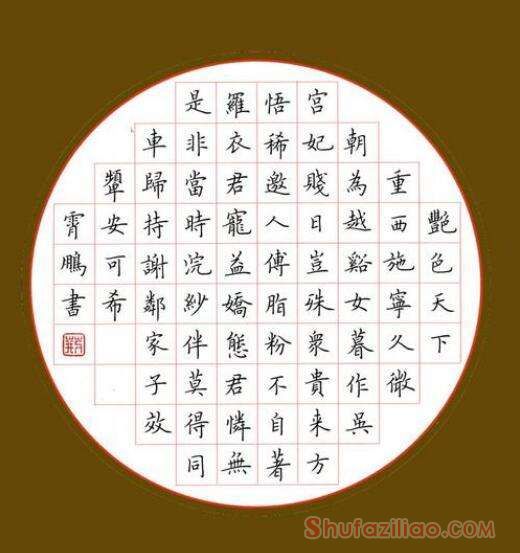 豔色天下
重西施寧久微
朝為越谿女暮作吳
宮妃賤日豈殊衆貴来方
悟稀邀人傅脂粉不自著
羅衣君寵益嬌態君憐無
是非當時浣紗伴莫得同
車歸持謝鄰家子效
顰安可希
霄鵬書
Shufaziliao.com